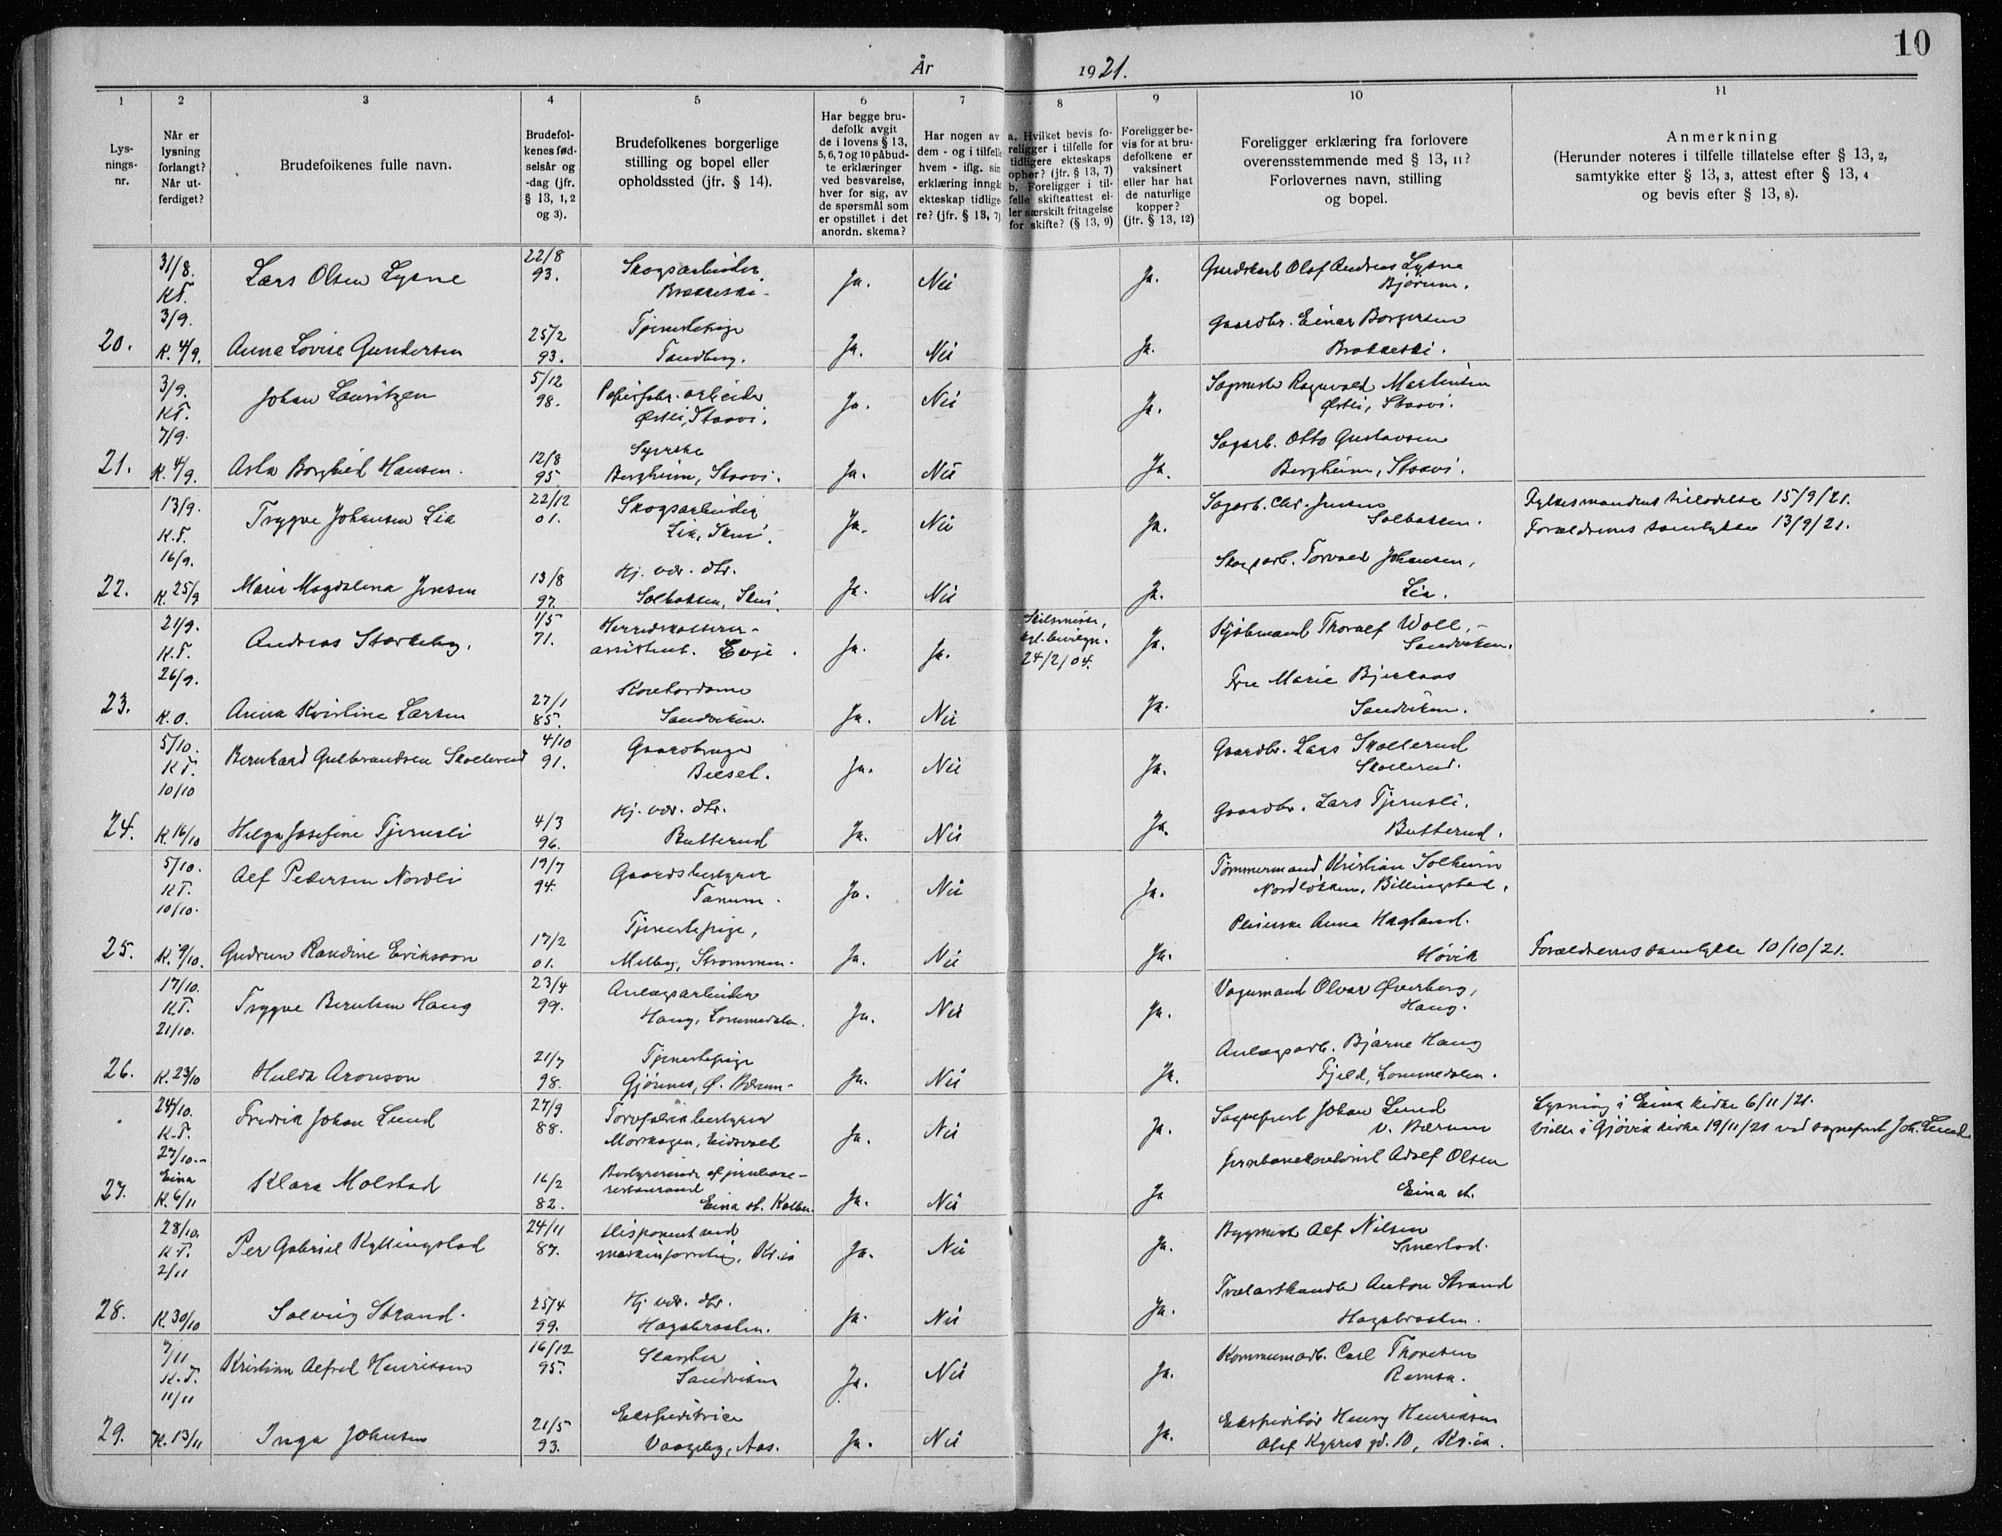 År 1921.
10
1 2 3 4 5 6 7 8 9 10 11
Lys-
nings-
nr.
Når er
lysning
forlangt?
Når ut-
ferdiget?
Brudefolkenes fulle navn.
Brudefol-
kenes fød-
selsår og
-dag (jfr.
§ 13, 1, 2
og 3).
Brudefolkenes borgerlige
stilling og bopel eller
opholdssted (jfr. § 14).
Har begge bru-
defolk avgit
de i lovens § 13,
5, 6, 7 og 10 påbud-
te erklæringer
ved besvarelse,
hver for sig, av
de spørsmål som
er opstillet i det
anordn. skema?
Har nogen av
dem - og i tilfelle
hvem - iflg. sin
erklæring inngåt
ekteskap tidlige-
re? (jfr. § 13, 7)
a. Hvilket bevis fo-
religger i tilfelle for
tidligere ekteskaps
ophør? (jfr. § 13, 7)
b. Foreligger i til-
felle skifteattest el-
ler særskilt fritagelse
for skifte? (§ 13, 9)
Foreligger be-
vis for at bru-
defolkene er
vaksinert
eller har hat
de naturlige
kopper?
(jfr. § 13, 12)
Foreligger erklæring fra forlovere
overensstemmende med § 13, 11?
Forlovernes navn, stilling
og bopel.
Anmerkning
(Herunder noteres i tilfelle tillatelse efter § 13, 2,
samtykke efter § 13, 3, attest efter § 13, 4
og bevis efter § 13, 8).
31/8. K.T. 3/9. Lars Olsen Lysne 22/8 93. Skogsarbeider Ja. Nei Ja. Gaardskarl Olaf Andreas Lysne
Bjørum.
20. K. 4/9. Anna Lovise Gundersen 25/2 93. Tjenestepige Tandberg. Ja. Nei Ja. Gaardbr. Einar Borgersen
3/9. K.T. 7/9. Johan Lauritzen 5/12 98. Papirfabr. arbeider Østli, Staavi. Ja. Nei Ja. Sagmester Ragnvald Martinsen
Østli, Staavi.
21. K. 4/9. Asta Borghild Hansen. 12/8 95. Syerske Bergheim, Staavi. Ja. Nei Ja. Sagarb. Otto Gustavsen
Bergheim, Staavi.
13/9. K.T. 16/9. Trygve Johansen Lia 22/12 01. Skogsarbeider Lia, Skui. Ja. Nei Ja. Sagarb. Chr. Jensen
Solbakken. Fylkesmandens tilladelse 15/9/21.
Forældrenes samtykke 13/9/21.
22. K. 25/9 Marie Magdalena Jensen 13/8 97. Hj. vær. dtr. Solbakken, Skui. Ja. Nei Ja. Skogarb. Torvald Johansen,
Lia.
21/9. K.T. 26/9. Andreas Størkeby. 1/5 71. Herredskasserer-
assistent. Evje. Ja. Ja. Skilsmisse, kgl. bevilgn. 24/2/04. Ja. Kjøbmand Thoralf Woll,
Sandviken.
23. K.O. Anna Kristine Larsen 27/1 85. Kontordame Sandviken. Ja. Nei Ja. Fru Marie Bjerkaas
Sandviken.
5/10. K.T. 10/10 Bernhard Gulbrandsen Skollerud 4/10 91. Gaardbruger Bielsel. Ja. Nei Ja. Gaardbr. Lars Skollerud
Skollerud.
24. K. 16/10 Helga Josefine Tjernsli 4/3 96. Hj. vær. dtr. Butterud Ja. Nei Ja. Gaardbr. Lars Tjernsli.
Butterud.
5/10. K.T. 10/10. Alf Pedersen Nordli 19/7 94. Gaardsbestyrer Tanum. Ja. Nei Ja. Tømmermand Kristian Solheim
Nordløkken, Billingstad.
25. K. 9/10. Gudrun Randine Eriksson 17/2 01. Tjenestepige, Melby, Strommen. Ja. Nei Ja. Pleierske Anna Hagland.
Høvik Forældrenes samtykke 10/10/21.
17/10. K.T. 21/10. Trygve Berntsen Haug 23/4 99. Anlægsarbeider Haug, Lommedalen. Ja. Nei Ja. Vognmand Olvar Øverberg,
Haug.
26. K. 23/10 Hulda Aronson 21/7 98. Tjenestepige Gjønnes, Ø. Bærum. Ja. Nei Ja. Anlægsarb. Bjarne Haug
Fjeld, Lommedalen.
24/10. K.T. 27/10. Fredrik Johan Lund 27/9 88. Torvfabrikbestyrer Morskogen, Eidsvold Ja. Nei Ja. Sogneprest Johan Lund
V. Bærum Lysning i Eina kirke 6/11/21.
Vielse i Gjøvik kirke 19/11/21 ved sogneprest Joh. Lund.
27. Eina K. 6/11 Klara Molstad 16/2 82. Bestyrerinde af jernbane-
restaurant Eina st. Kolbu. Ja. Nei Ja Adolf Olsen
Eina st.
28/10. K.T. 2/11 Per Gabriel Kyllingstad 24/11 87. Disponent ved
maskinforretng, Kr.ia Ja. Nei Ja. Byggmest. Alf Nilsen
Smestad.
28. K. 30/10 Solveig Strand. 25/4 99. Hj. vær. dtr. Hagabraaten. Ja. Nei Ja. Trælasthandler Anton Strand
Hagabraaten.
7/11 K.T. 11/11 Kristian Alfred Henriksen 16/12 95. Slagter Sandviken Ja. Nei Ja. Kommunearb. Carl Thoresen
Ramsa.
29. K. 13/11 Inga Johnsen 21/5 93. Ekspeditrice Vaageby, Aas. Ja. Nei Ja. Ekspeditør Henry Henriksen
Olaf Kyrres gd. 10, Kr.ia.